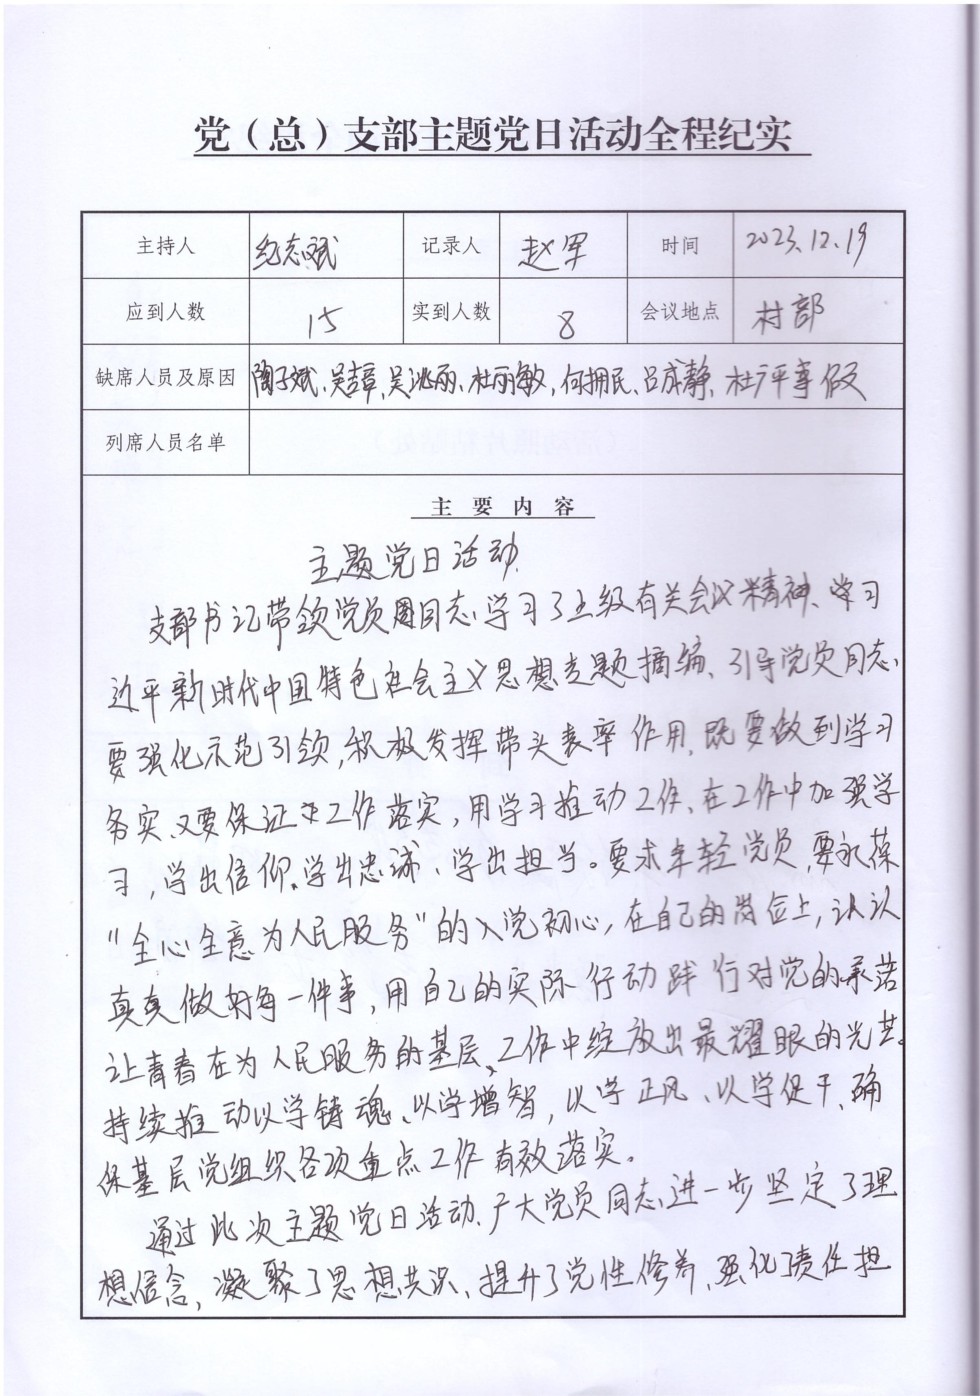 党（总）支部主题党日活动全程纪实
主持人 纪志斌 记录人 赵军 时间 2023.12.19
应到人数 15 实到人数 8 会议地点 村部
缺席人员及原因 陶子斌、吴章、吴洮丽、杜丽敏，何拥民、吕成静、杜平事假
列席人员名单
主要内容
主题党日活动
支部书记带领党员周同志学习了上级有关会议精神、学习
近平新时代中国特色社会主义思想专题摘编、引导党员同志、
要强化示范引领，积极发挥带头表率作用，既要做到学习
务实、又要保证工作落实，用学习推动工作、在工作中加强学
习，学出信仰、学出忠诚、学出担当。要求年轻党员，要永葆
“全心全意为人民服务”的入党初心，在自己的岗位上，认认
真真做好每一件事，用自己的实际行动践行对党的承诺
让青春在为人民服务的基层、工作中绽放出最耀眼的光芒。
持续推动以学铸魂、以学增智，以学正风、以学促干、确
保基层党组织各项重点工作有效落实。
通过此次主题党日活动、广大党员同志进一步坚定了理
想信念，凝聚了思想共识、提升了党性修养、强化了责任担